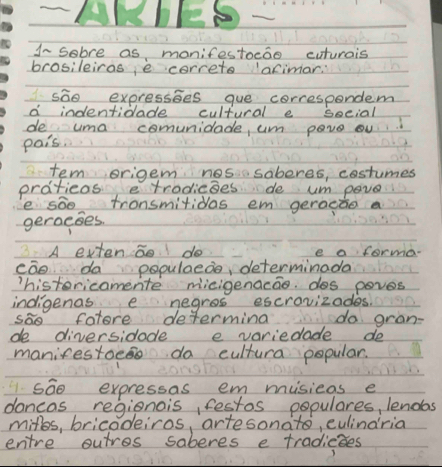 ARTES
1- Sobre as, manifestação cuturais
brasileiras, é correto afirmar:
1- são expressões que correspondem
á indentidade cultural e social
de uma comunidade, um povo ou
país.
2- tem origem nos saberes, costumes
práticas e tradicões de um povo
e são transmitidas em geracão a
gerações.
3- A exten ão do e a forma-
cão da populacão, determinada
historicamente micigenacão dos povos
indígenas e negros escravizados
são fatore determina da gran-
de diversidade e variedade de
manifestacão da cultura popular.
4- são expressas em músicas e
dancas regionais, festas populares, lendas
mitos, bricadeiras, artesanato, culinária
entre outros saberes e tradicões